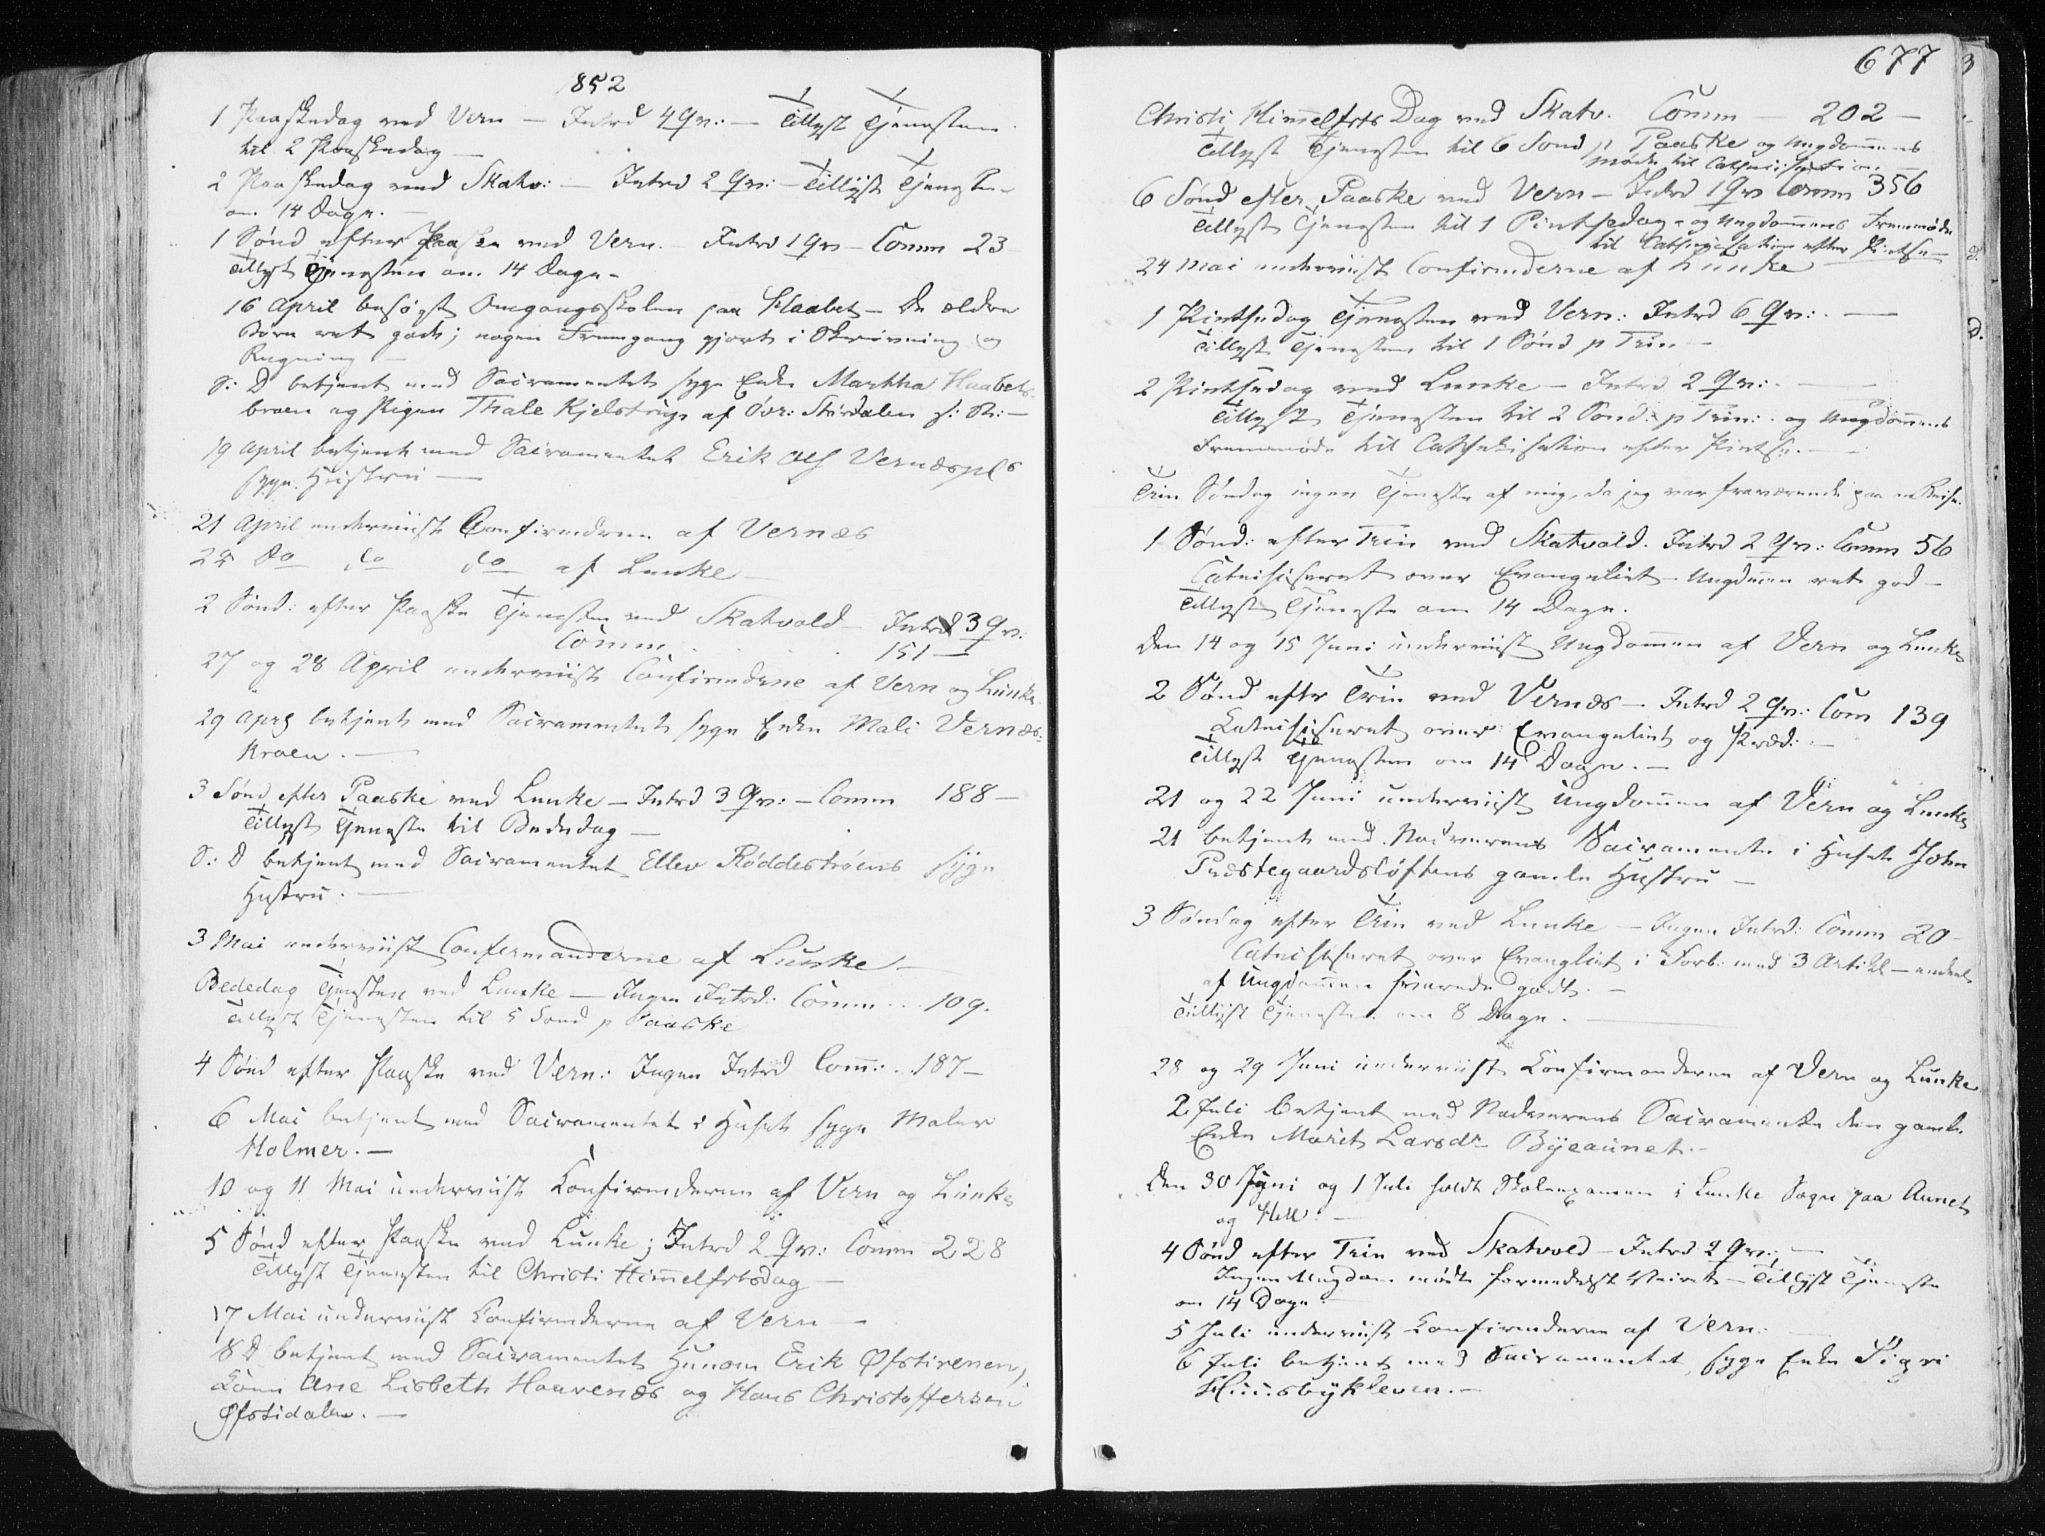 852
1 Paaskedag ved Vern — Introd 4 Qv: — Tillyst Tjenesten
til 2 Paaskedag —
2 Paaskedag ved Skatv: — Introd 2 Qv: — Tillyst Tjenesten
om 14 Dage. —
1 Sønd efter Paaske ved Vern. — Introd 1 Qv — Comm 23
Tillyst Tjenesten om 14 Dage —
16 April besøgt Omgangsskolen paa Haabet — De ældre
Børn ret godt; nogen Fremgang gjort i Skrivning og
Regning —
S: D betjent med Sacramentet syge Enke Martha Haabets-
braen og Pigen Thale Kjelstrup af Øvr: Stirdalen
19 April betjent med Sacramentet Erik Ols Vernæspls
syge Hustru —
21 April underviist Confirmderne af Vernæs
22 do do do af Lunke —
2 Sønd: efter Paaske Tjenesten ved Skatvold — Introd 3 Qv:
Comm . . . . 151 —
27 og 28 April underviist Confirmderne af Vern og Lunke.
29 April betjent med Sacramentet syge Enke Mali Vernæs-
kraen. —
3 Sønd efter Paaske ved Lunke — Introd 3 Qv: — Comm 188 —
Tillyst Tjeneste til Bededag —
S: D betjent med Sacramentet Ellev Røddestrøens syge
Hustru. —
3 Mai underviist Confermanderne af Lunke —
Bededag Tjenesten ved Lunke — Ingen Introd: Comm . . . 109.
Tillyst Tjenesten til 5 Sønd p Paaske
4 Sønd efter Paaske ved Vern: Ingen Introd Comm: . . 187 —
6 Mai betjent med Sacramentet i Huset syge Maler
Holmer. —
10 og 11 Mai underviist Konfirmderne af Vern og Lunke
5 Sønd efter Paaske ved Lunke; Introd 2 Qv: Comm 228
Tillyst Tjenesten til Christi Himmelfrtsdag —
17 Mai underviist Konfirmderne af Vern —
18 D betjent med Sacramentet Erik Øfstirenen,
Ane Lisbeth Haavenæs og Hans Christoffersen
Øfstidalen. —
677
Christi Himmelfrts Dag ved Skatv. Comm — 202 —
Tillyst Tjenesten til 6 Sønd p Paaske og Ungdommens
Møde til Cathecisation —
6 Sønd efter Paaske ved Vern — Introd 1 Qv Comm 356
Tillyst Tjenesten til 1 Pintsedag — og Ungdommens Fremmøde
til Cathecisation efter Pintse —
24 Mai underviist Confirmderne af Lunke
1 Pintsedag Tjenesten ved Vern: Introd 6 Qv: . —
Tillyst Tjenesten til 1 Sønd p Trin —
2 Pintsedag ved Lunke — Introd 2 Qv: . —
Tillyst Tjenesten til 2 Sønd: p Trin: . og Ungdommens
Fremmøde til Cathekisation efter Pintse. —
Trin Søndag ingen Tjeneste af mig, da jeg var fraværende paa en Reise.
1 Sønd: efter Trin ved Skatvold. Introd 2 Qv: Comm 56
Cateisiseret over Evangeliet — Ungdommen ret god —
Tillyst Tjeneste om 14 Dage.
Den 14 og 15 Juni underviist Ungdommen af Vern og Lunke
2 Sønd efter Trin ved Vernæs — Introd 2 Qv: Com 139
Kateisiseret over Evangeliet og Præd: —
Tillyst Tjenesten om 14 Dage. —
21 og 22 Juni underviist Ungdommen af Vern og Lunke
21 betjent med Nadverens Sacramente i Huset John
Præstegaardsløftens gamle Hustru —
3 Søndag efter Trin ved Lunke — Ingen Introd: Comm 20 —
Cateisiseret over Evangliet i Forb: med 3 Artikl —
af Ungdommen svarede godt. —
Tillyst Tjenesten om 8 Dage. —
28 og 29 Juni underviist Konfirmanderne af Vern og Lunke
2 Juli betjent med Nadverens Sacramente den gamle
Enke Marit Larsdr Byeaunet. —
Den 30 Juni og 1 Juli holdt Skoleexamen i Lunke Sogn paa Aunet
og Hell. —
4 Sønd efter Trin ved Skatvold — Introd 2 Qv: —
Ingen Ungdom mødte formedelst Veiret — Tillyst Tjeneste
om 14 Dage. —
5 Juli underviist Konfirmderne af Vern: —
6 Juli betjent med Sacramentet syge Enke Sigri
Huusbykleven. —